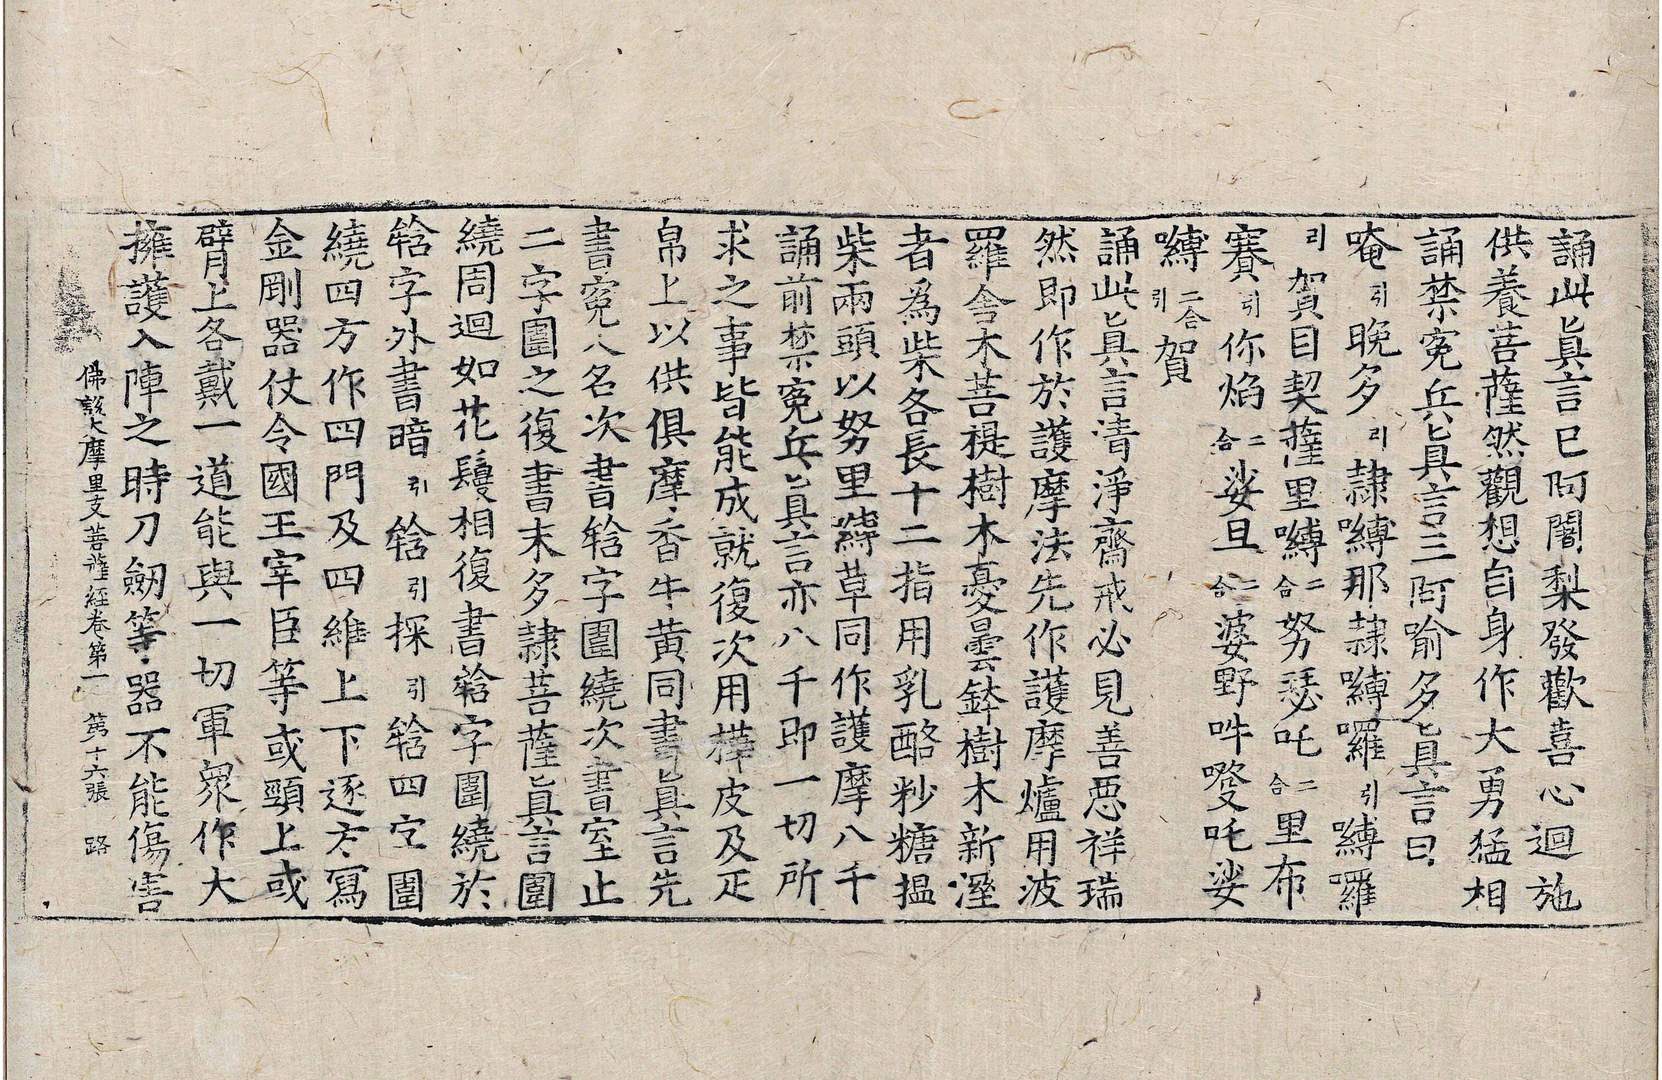 誦此真言已阿闍梨發歡喜心迴施
供養菩薩然觀想自身作大勇猛相
誦禁寃兵真言三阿喻多真言曰
唵引晚多哩隷嚩那隷嚩囉引嚩囉
哩賀目契薩里嚩二合努瑟吒二合里布
賽引你焰二合娑旦二合婆野吽㗶吒娑
嚩二合引賀
誦此真言清淨齋戒必見善悪祥瑞
然即作於護摩法先作護摩爐用波
羅舍木菩提樹木憂曇鉢樹木新溼
者為柴各長十二指用乳酪粆糖揾
柴兩頭以努里嚩草同作護摩八千
誦前禁寃兵真言亦八千即一切所
求之事皆能成就復次用樺皮及疋
帛上以供俱摩香牛黄同書真言先
書寃人名次書㘕字圍繞次書室止
二字圍之復書末多隷菩薩真言圍
繞周迴如花鬘相復書㘕字圍繞於
㘕字外書暗引㘕引探引㘕四字圍
繞四方作四門及四維上下逐方寫
金剛器仗令國王宰臣等或頸上或
臂上各戴一道能與一切軍衆作大
擁護入陣之時刀劒等器不能傷害
佛説大摩里支菩薩經卷第一 第十六張 路